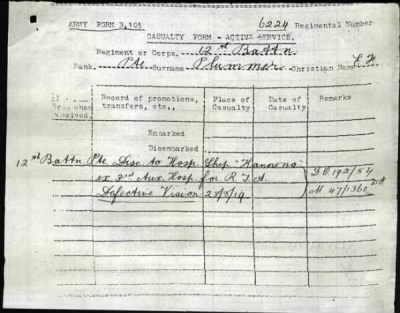 ARMY FORM 3.103 6224 Regimental Number
CASUALTY FORM - ACTIVE SERVICE.
Regiment or Corps. 12th Battn
Rank. Pte Surname Plummer Christian Name
From whom received.
Record of promotions, transfers, etc.,
Place of Casualty
Date of Casualty
Remarks
Embarked
Disembarked
12th Battn Pte Disc. to Hosp. Ship "Kanowna"
ex 3rd Aux. Hosp for R.T.A.
Defective Vision
DO 192/54
M 47/1360